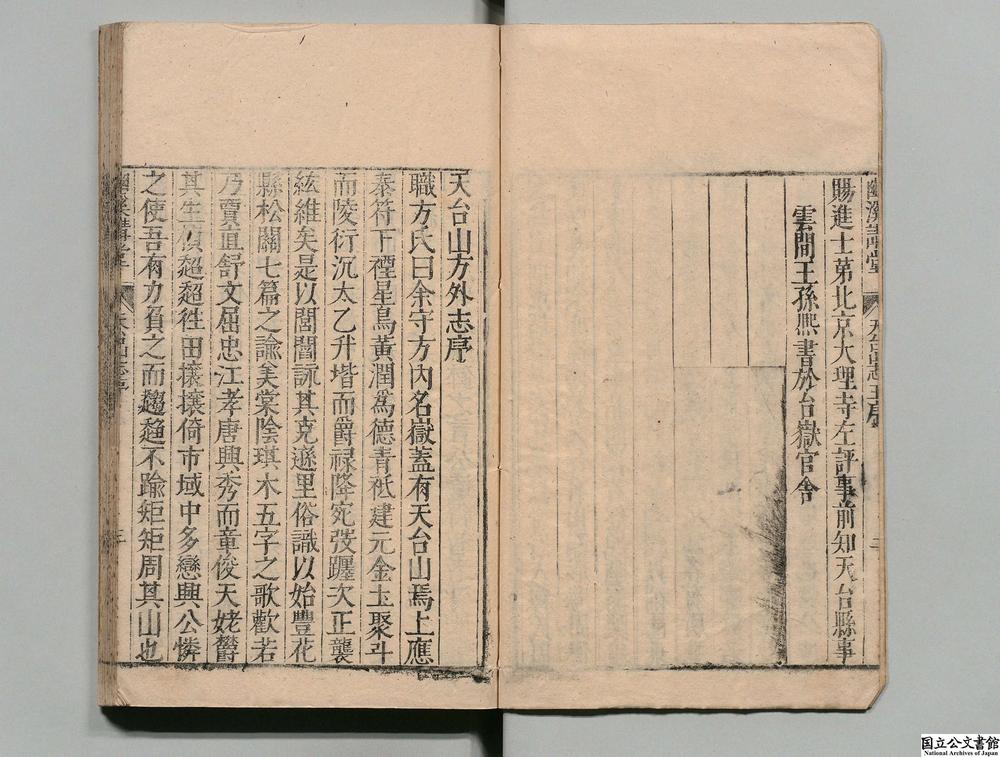 賜進士第北京大理寺左評事前知天台縣事
雲間王孫熙書於台嶽官舍
天台山方外志序
職方氏曰余守方內名嶽蓋有天台山焉上應
泰符下禋星鳥黃潤爲德青祗建元金土聚斗
而陵衍沉太乙升堦而爵祿降宛發躔次正襲
絃維矣是以閭閻詠其克遜里俗識以始豐花
縣松關七篇之諭美棠陰琪木五字之歌歡若
乃賈直舒文屈忠江孝唐興秀而童俊天姥欝
其生傾趨趨徃田攘攘倚市域中多戀與公憐
之使吾有力負之而趨趨不踰矩矩周其山也
国立公文書館
National Archives of Japan